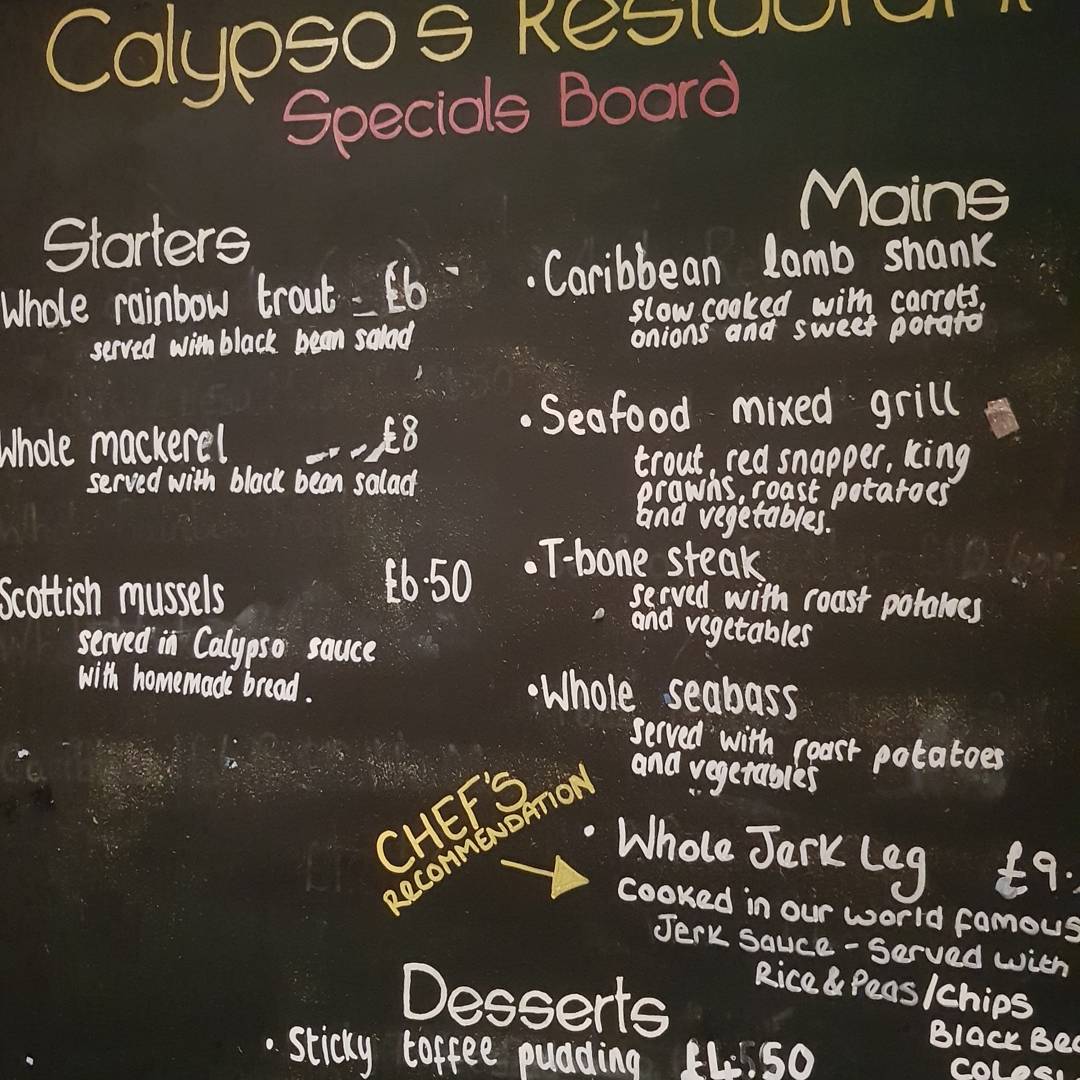 Calypso's Restaurant
Specials Board
Starters
Whole rainbow trout - £6
served with black bean salad
Whole mackerel --- £8
served with black bean salad
Scottish mussels £6.50
served in Calypso sauce
with homemade bread.
Mains
• Caribbean lamb shank
slow cooked with carrots,
onions and sweet potato
• Seafood mixed grill
trout, red snapper, king
prawns, roast potatoes
and vegetables.
• T-bone steak
served with roast potatoes
and vegetables
• Whole seabass
served with roast potatoes
and vegetables
CHEF'S
RECOMMENDATION
• Whole Jerk Leg £9.
Cooked in our world famous
Jerk Sauce - Served with
Rice & Peas / Chips
Black
Desserts
• Sticky toffee pudding £4.50